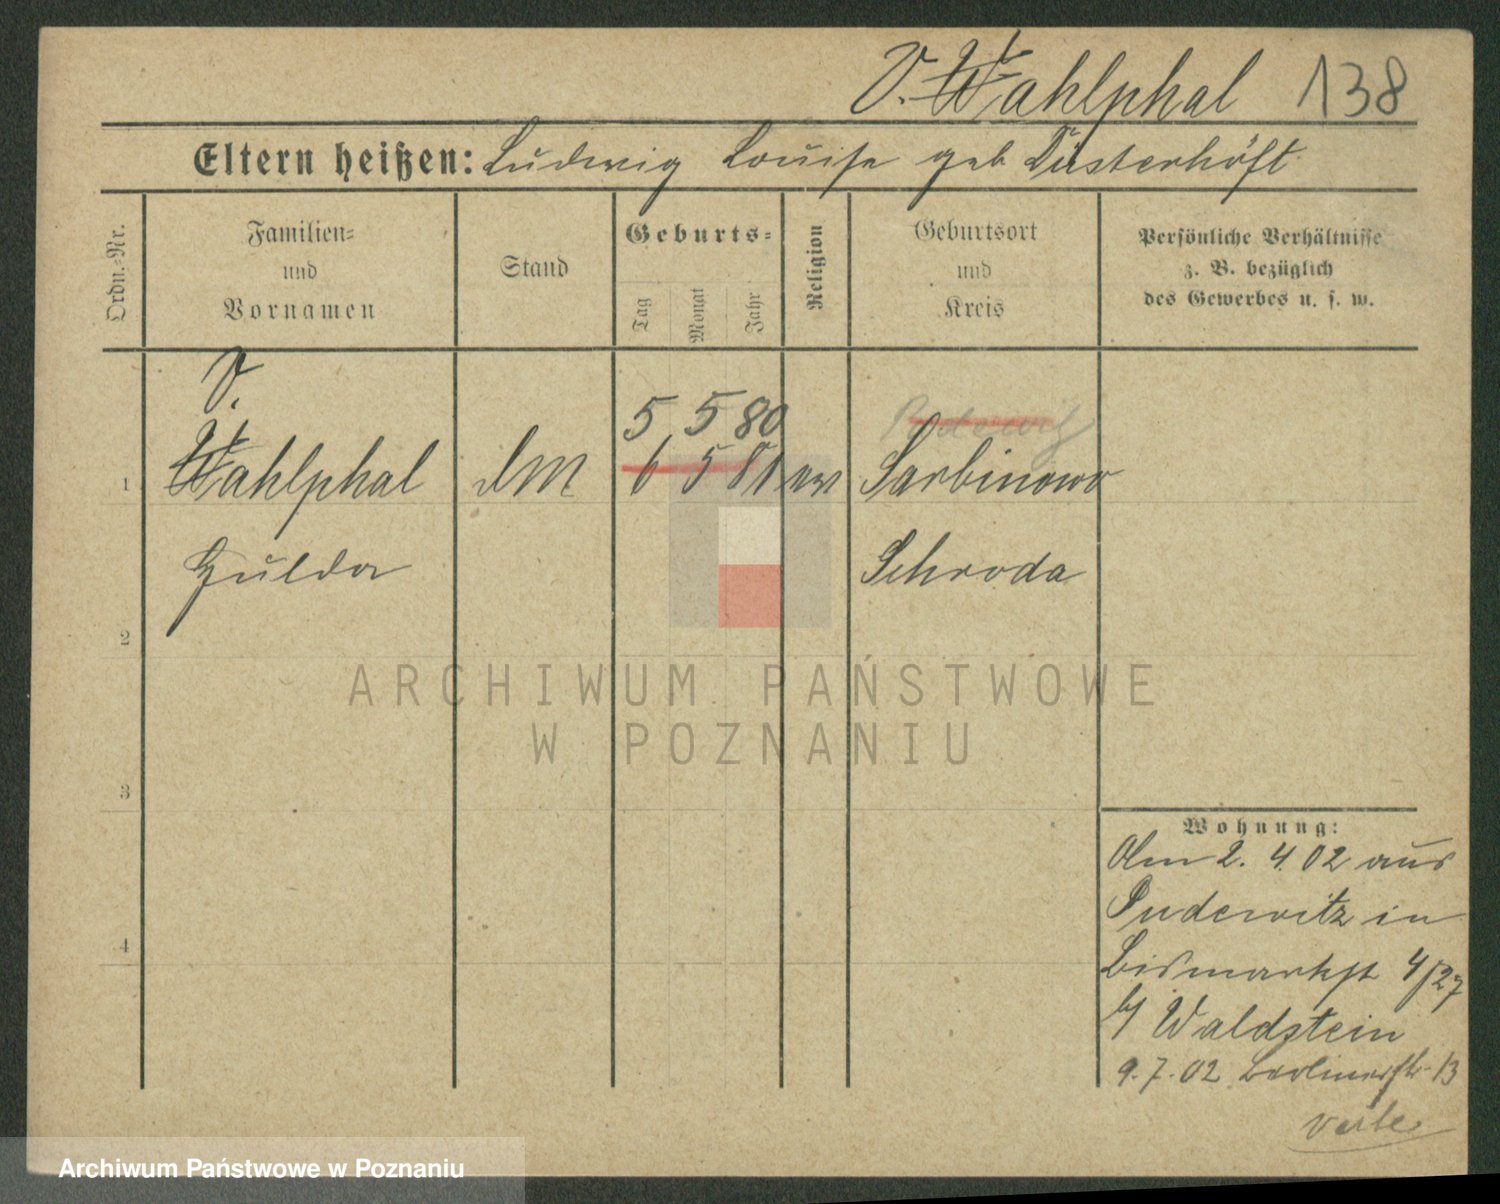 V. Wahlphal 138
Eltern heißen: Ludwig Louise geb Düsterhöft
Ordn.-Nr.
Familien-
und
Vornamen
Stand
Geburts-
Tag Monat Jahr
Religion
Geburtsort
und
Kreis
Persönliche Verhältnisse
z. B. bezüglich
des Gewerbes u. s. w.
V.
5 5 80
1 Wahlphal DM 6 5 81 ev Sarbinowo
Hulda Schroda
2
3
4
Wohnung:
Am 2. 4. 02 aus
Pudewitz in
Bismarkst 4/27
b/ Waldstein
9. 7. 02 Berlinerstr 13
ARCHIWUM PAŃSTWOWE
W POZNANIU
Archiwum Państwowe w Poznaniu